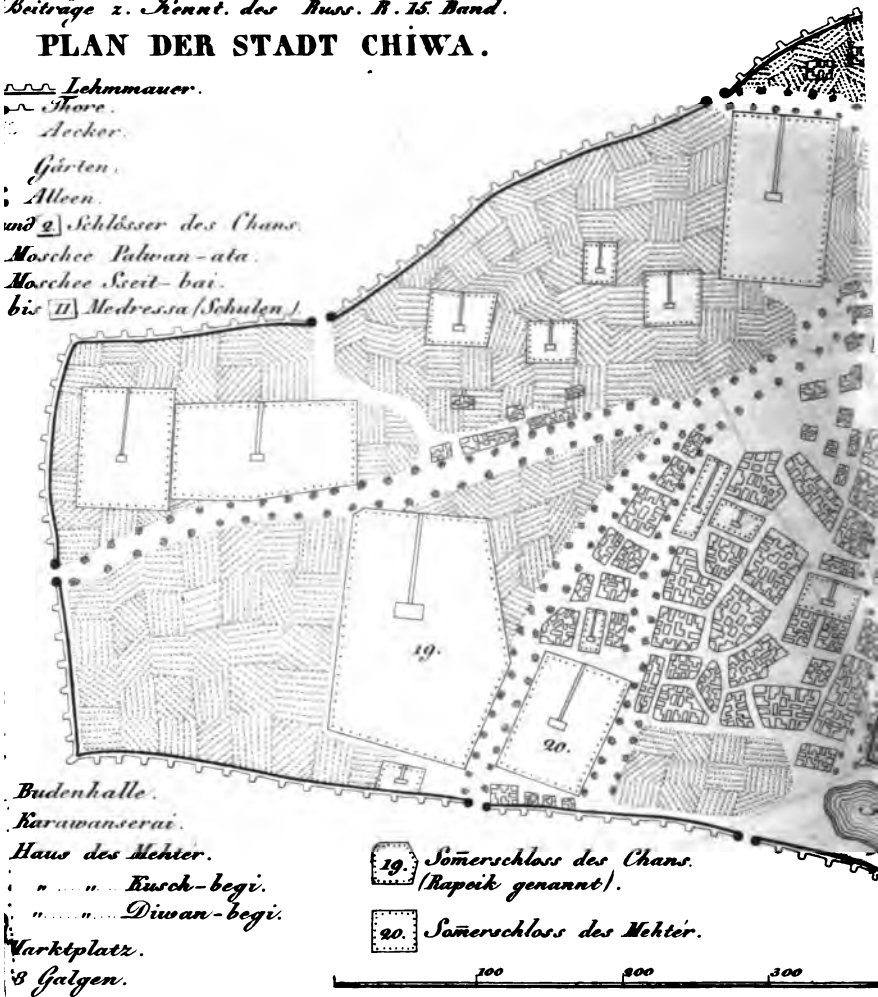 Beiträge z. Kennt. des Russ. R. 15. Band.
PLAN DER STADT CHIWA.
Lehmmauer.
Thore.
Aecker.
Gärten.
Alleen.
und 2 Schlösser des Chans.
Moschee Palwan-ata.
Moschee Sseit-bai.
bis 11 Medressa (Schulen).
19.
20.
Budenhalle.
Karawanserai.
Haus des Mehtér.
" " Kusch-begi.
" " Diwan-begi.
Marktplatz.
8 Galgen.
19. Som̄erschloss des Chans.
(Rapeik genannt).
20. Som̄erschloss des Mehtér.
100 200 300